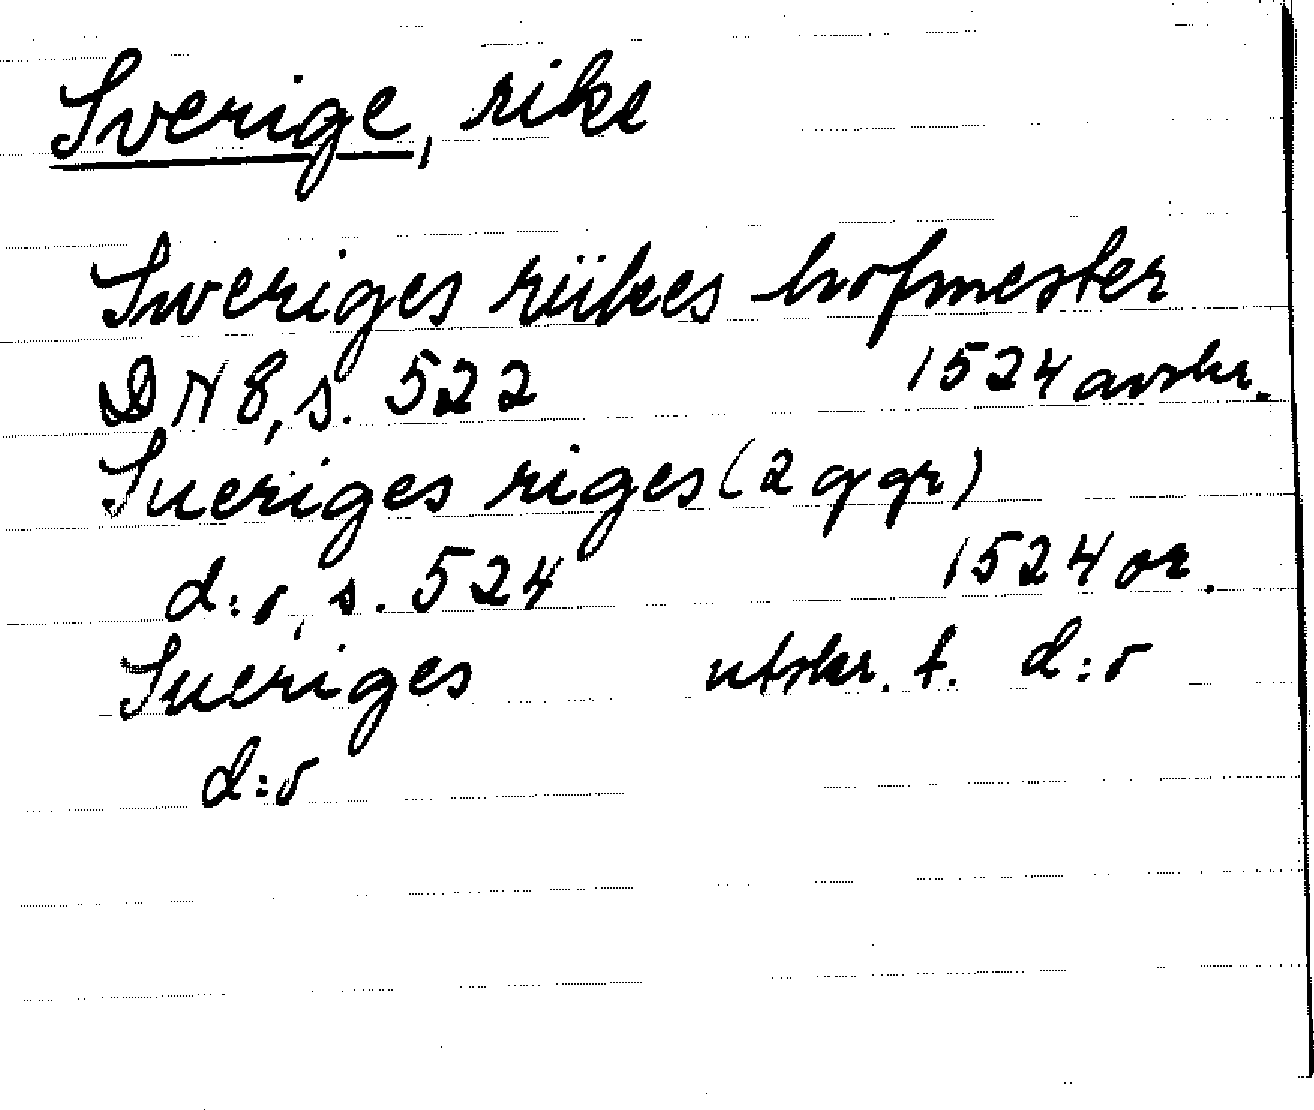 Sverige, rike
Sweriges riikes hofmester
DN 8, s. 522 1524 avskr.
Sueriges riges (2 ggr)
d:o, s. 524 1524 or.
Sueriges utskr. t. d:o
d:o